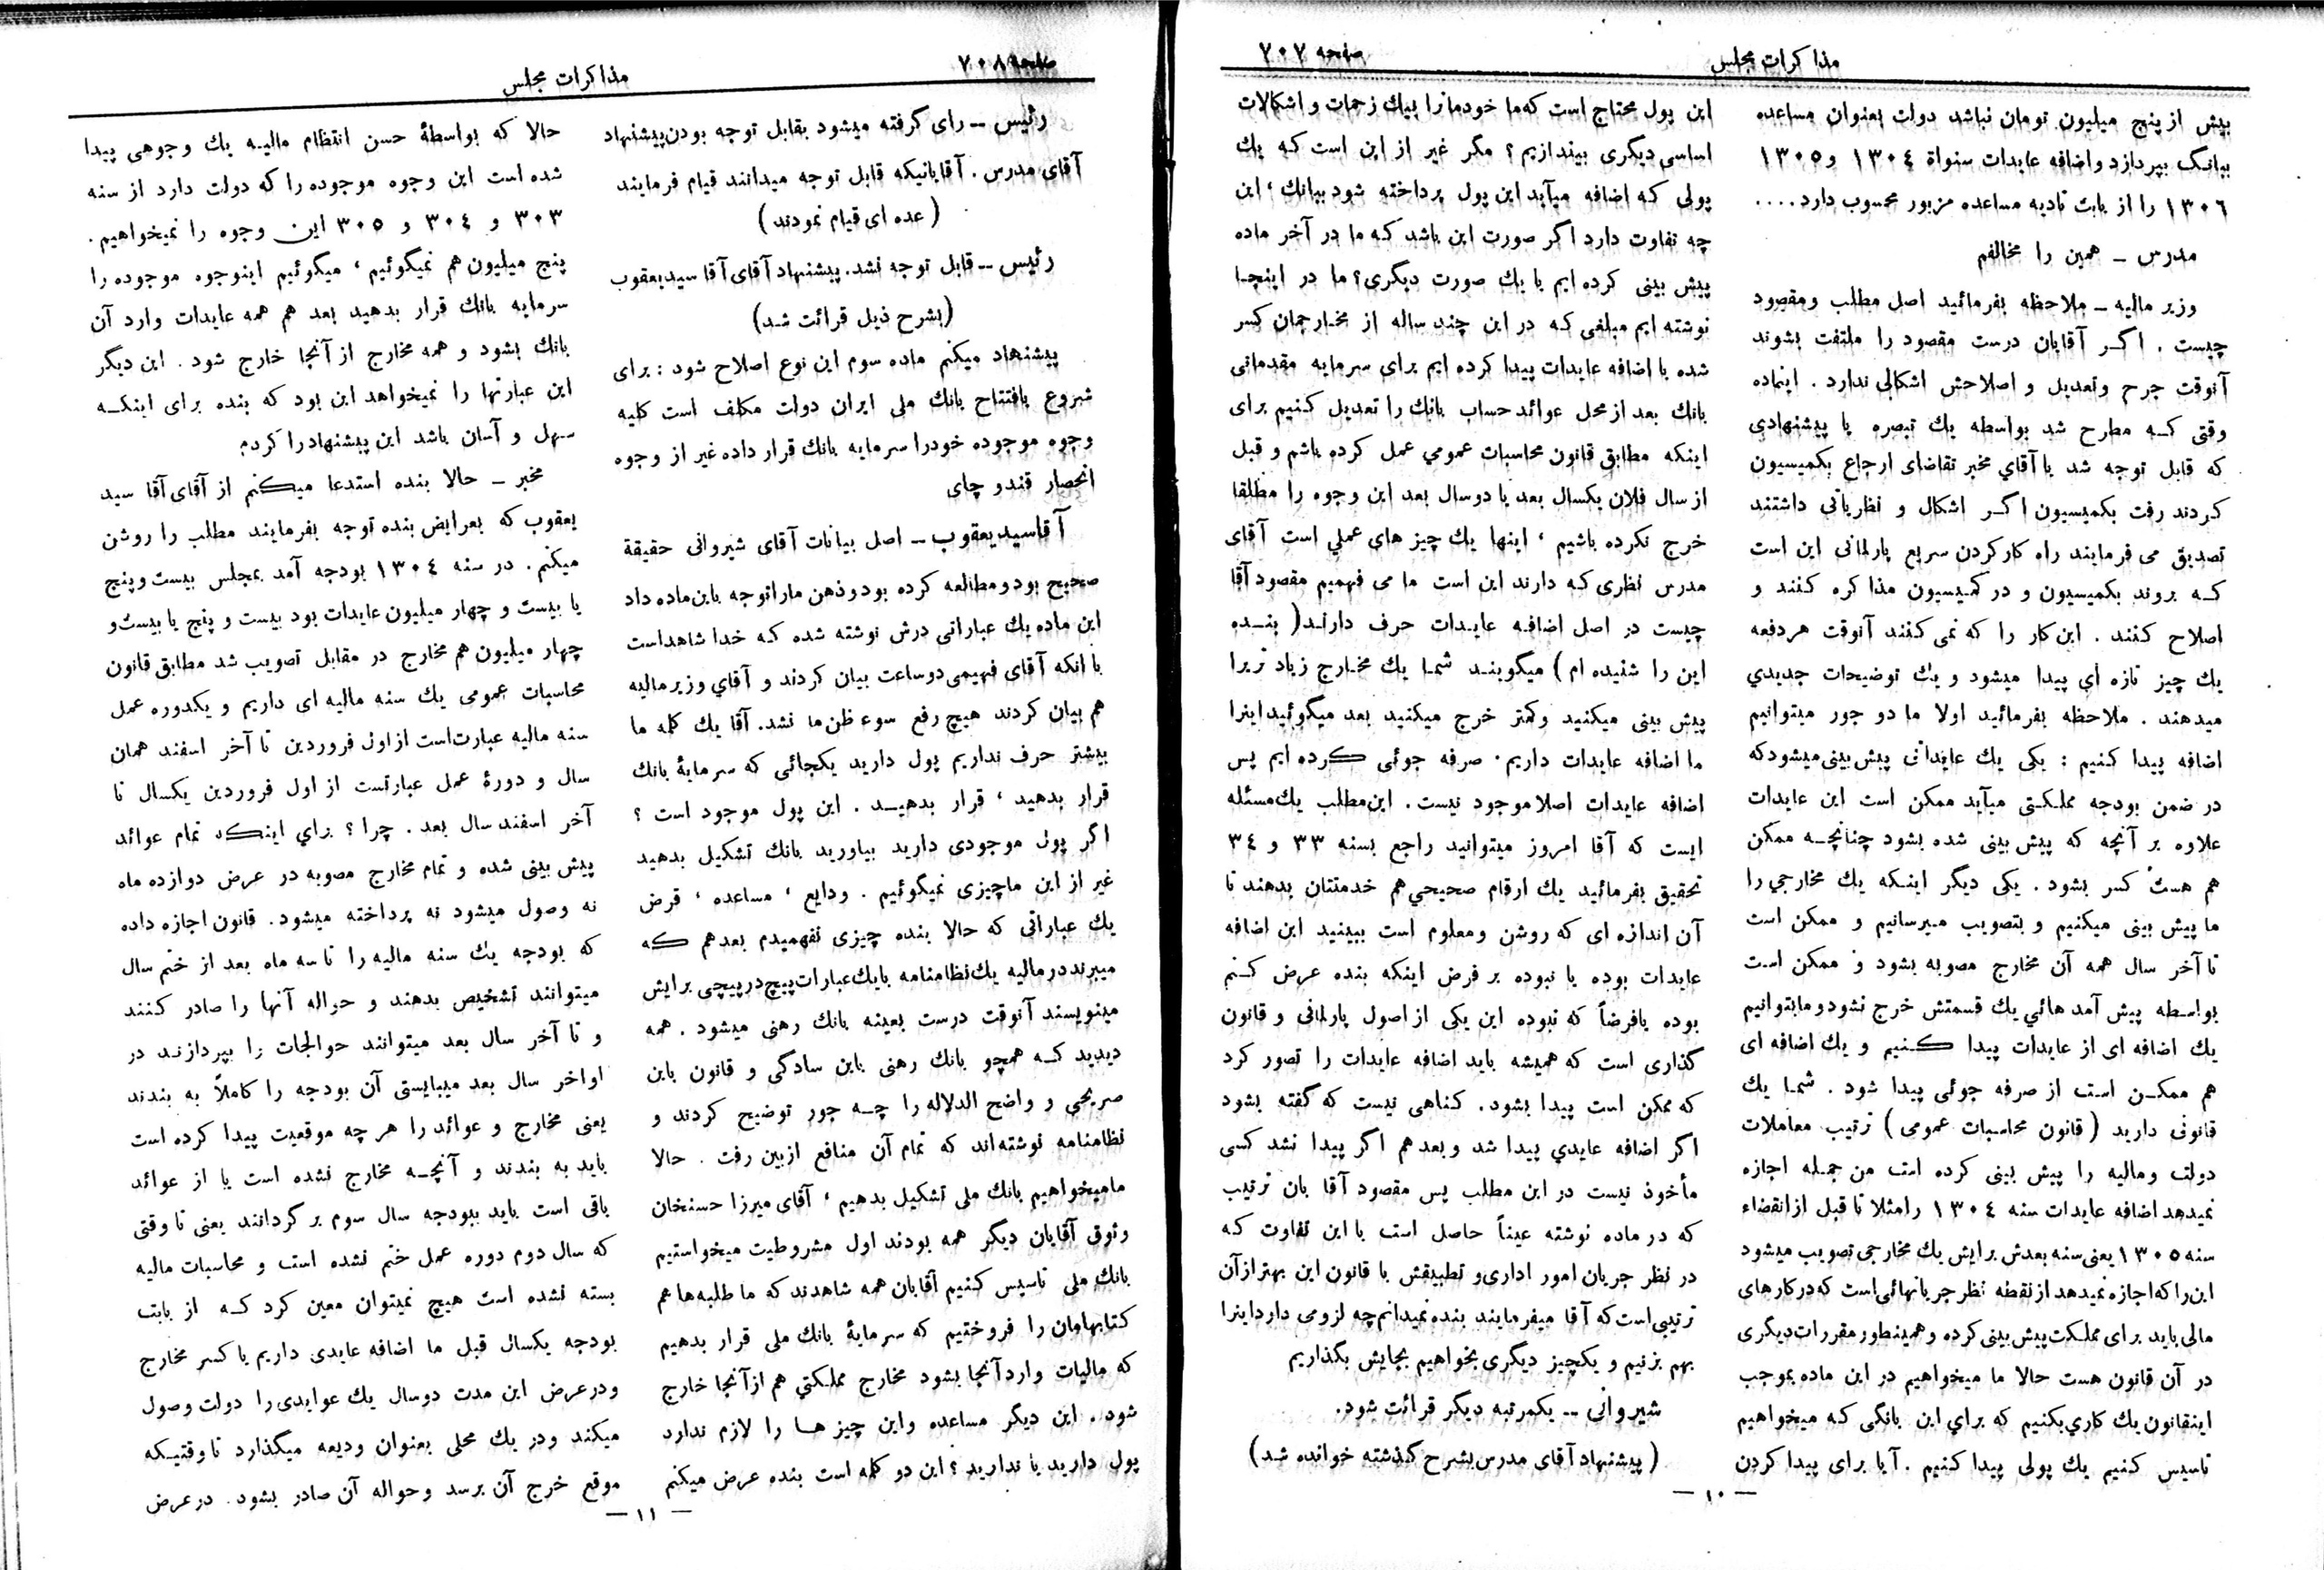 مذاکرات مجلس
صفحه ۷۰۷
بیش از پنج میلیون تومان نباشد دولت بعنوان مساعده
ببانک بپردازد و اضافه عایدات سنواة ۱۳۰٤ و ۱۳۰٥
۱۳۰٦ را از بابت تادیه مساعده مزبور محسوب دارد....
مدرس ـ همین را مخالفم
وزیر مالیه ـ ملاحظه بفرمائید اصل مطلب و مقصود
چیست . اگر آقایان درست مقصود را ملتفت بشوند
آنوقت جرح و تعدیل و اصلاحش اشکالی ندارد . اینماده
وقتی که مطرح شد بواسطه یك تبصره یا پیشنهادی
که قابل توجه شد یا آقاي مخبر تقاضای ارجاع بکمیسیون
کردند رفت بکمیسیون اگر اشکال و نظریاتی داشتند
تصدیق می فرمایند راه کار کردن سریع پارلمانی این است
که بروند بکمیسیون و در کمیسیون مذاکره کنند و
اصلاح کنند . این کار را که نمی کنند آنوقت هر دفعه
یك چیز تازه ای پیدا میشود و یك توضیحات جدیدي
میدهند . ملاحظه بفرمائید اولا ما دو جور میتوانیم
اضافه پیدا کنیم : یکی یك عایداتی پیش بینی میشود که
در ضمن بودجه مملکتی میآید ممکن است این عایدات
علاوه بر آنچه که پیش بینی شده بشود چنانچه ممکن
هم هست کسر بشود . یکی دیگر اینکه یك مخارجي را
ما پیش بینی میکنیم و بتصویب میرسانیم و ممکن است
تا آخر سال همه آن مخارج مصوبه بشود و ممکن است
بواسطه پیش آمد هائي یك قسمتش خرج نشود و ما بتوانیم
یك اضافه ای از عایدات پیدا کنیم و یك اضافه ای
هم ممکن است از صرفه جوئی پیدا شود . شما یك
قانونی دارید (قانون محاسبات عمومی) ترتیب معاملات
دولت و مالیه را پیش بینی کرده است من جمله اجازه
نمیدهد اضافه عایدات سنه ۱۳۰٤ را مثلا تا قبل از انقضاء
سنه ۱۳۰٥ یعنی سنه بعدش برایش یك مخارجی تصویب میشود
این را که اجازه نمیدهد از نقطه نظر جریانهائی است که در کارهای
مالی باید برای مملکت پیش بینی کرده و همینطور مقررات دیگری
در آن قانون هست حالا ما میخواهیم در این ماده بموجب
اینقانون یك کاري بکنیم که براي این بانگی که میخواهیم
تاسیس کنیم یك پولی پیدا کنیم . آیا برای پیدا کردن
این پول محتاج است که ما خودمانرا بیك زحمات و اشکالات
اساسی دیگری بیندازیم ؟ مگر غیر از این است که یك
پولی که اضافه میآید این پول پرداخته شود ببانك ، این
چه تفاوت دارد اگر صورت این باشد که ما در آخر ماده
پیش بینی کرده ایم یا یك صورت دیگری؟ ما در اینجا
نوشته ایم مبلغی که در این چند ساله از مخارجمان کسر
شده یا اضافه عایدات پیدا کرده ایم برای سرمایه مقدماتی
بانك بعد از محل عوائد حساب بانك را تعدیل کنیم برای
اینکه مطابق قانون محاسبات عمومي عمل کرده باشم و قبل
از سال فلان یکسال بعد یا دو سال بعد این وجوه را مطلقا
خرج نکرده باشیم ، اینها یك چیز های عملي است آقای
مدرس نظری که دارند این است ما می فهمیم مقصود آقا
چیست در اصل اضافه عایدات حرف دارند( بنده
این را شنیده ام ) میگویند شما یك مخارج زیاد تر یرا
پیش بینی میکنید و کمتر خرج میکنید بعد میگوئید اینرا
ما اضافه عایدات داریم . صرفه جوئی کرده ایم پس
اضافه عایدات اصلا موجود نیست . این مطلب یك مسئله
ایست که آقا امروز میتوانید راجع بسنه ۳۳ و ۳٤
تحقیق بفرمائید یك ارقام صحیحي هم خدمتتان بدهند تا
آن اندازه ای که روشن و معلوم است ببینید این اضافه
عایدات بوده یا نبوده بر فرض اینکه بنده عرض کنم
بوده یا فرضاً که نبوده این یکی از اصول پارلمانی و قانون
گذاری است که همیشه باید اضافه عایدات را تصور کرد
که ممکن است پیدا بشود . گناهی نیست که گفته بشود
اگر اضافه عایدي پیدا شد و بعد هم اگر پیدا نشد کسی
مأخوذ نیست در این مطلب پس مقصود آقا بان ترتیب
که در ماده نوشته عیناً حاصل است با این تفاوت که
در نظر جریان امور اداری و تطبیقش با قانون این بهتر از آن
ترتیبی است که آقا میفرمایند بنده نمیدانم چه لزومی دارد اینرا
بهم بزنیم و یکچیز دیگری بخواهیم بجایش بگذاریم
شیروانی ــ یکمرتبه دیگر قرائت شود.
( پیشنهاد آقای مدرس بشرح گذشته خوانده شد )
— ۱۰ —
صفحه ۷۰۸
مذاکرات مجلس
رئیس ــ رای گرفته میشود بقابل توجه بودن پیشنهاد
آقای مدرس . آقایانیکه قابل توجه میدانند قیام فرمایند
( عده ای قیام نمودند )
رئیس ــ قابل توجه نشد. پیشنهاد آقای آقا سید یعقوب
(بشرح ذیل قرائت شد)
پیشنهاد میکنم ماده سوم این نوع اصلاح شود : برای
شروع بافتتاح بانك ملی ایران دولت مکلف است کلیه
وجوه موجوده خود را سرمایه بانك قرار داده غیر از وجوه
انحصار قند و چای
آقا سید یعقوب ــ اصل بیانات آقای شیروانی حقیقة
صحیح بود و مطالعه کرده بود و ذهن ما را توجه باین ماده داد
این ماده یك عباراتی درش نوشته شده که خدا شاهد است
با انکه آقای فهیمی دو ساعت بیان کردند و آقاي وزیر مالیه
هم بیان کردند هیچ رفع سوء ظن ما نشد. آقا یك کلمه ما
بیشتر حرف نداریم پول دارید یکجائی که سرمایهٔ بانك
قرار بدهید ، قرار بدهید . این پول موجود است ؟
اگر پول موجودی دارید بیاورید بانك تشکیل بدهید
غیر از این ما چیزی نمیگوئیم . ودایع ، مساعده ، قرض
یك عباراتی که حالا بنده چیزی نفهمیدم بعد هم که
میبرند در مالیه یك نظامنامه با یك عبارات پیچ در پیچی برایش
مینویسند آنوقت درست بعینه بانك رهنی میشود . همه
دیدید که همچو بانك رهنی باین سادگی و قانون باین
صریحی و واضح الدلاله را چه جور توضیح کردند و
نظامنامه نوشته‌اند که تمام آن منافع از بین رفت . حالا
ما میخواهیم بانك ملی تشکیل بدهیم ، آقای میرزا حسنخان
وثوق آقایان دیگر همه بودند اول مشروطیت میخواستیم
بانك ملی تاسیس کنیم آقایان همه شاهدند که ما طلبه‌ها هم
کتابهامان را فروختیم که سرمایهٔ بانك ملی قرار بدهیم
که مالیات وارد آنجا بشود مخارج مملکتي هم از آنجا خارج
شود . این دیگر مساعده و این چیز ها را لازم ندارد
پول دارید یا ندارید ؟ این دو کلمه است بنده عرض میکنم
حالا که بواسطهٔ حسن انتظام مالیه یك وجوهی پیدا
شده است این وجوه موجوده را که دولت دارد از سنه
۳۰۳ و ۳۰٤ و ۳۰٥ این وجوه را نمیخواهیم .
پنج میلیون هم نمیگوئیم ، میگوئیم اینوجوه موجوده را
سرمایه بانك قرار بدهید بعد هم همه عایدات وارد آن
بانك بشود و همه مخارج از آنجا خارج شود . این دیگر
این عبارتها را نمیخواهد این بود که بنده برای اینکه
سهل و آسان باشد این پیشنهاد را کردم
مخبر ـ حالا بنده استدعا میکنم از آقای آقا سید
یعقوب که بعرایض بنده توجه بفرمایند مطلب را روشن
میکنم . در سنه ۱۳۰٤ بودجه آمد بمجلس بیست و پنج
یا بیست و چهار میلیون عایدات بود بیست و پنج یا بیست و
چهار میلیون هم مخارج در مقابل تصویب شد مطابق قانون
محاسبات عمومی یك سنه مالیه ای داریم و یکدوره عمل
سنه مالیه عبارت است از اول فروردین تا آخر اسفند همان
سال و دورهٔ عمل عبارتست از اول فروردین یکسال تا
آخر اسفند سال بعد . چرا ؟ براي اینکه تمام عوائد
پیش بینی شده و تمام مخارج مصوبه در عرض دوازده ماه
نه وصول میشود نه پرداخته میشود. قانون اجازه داده
که بودجه یك سنه مالیه را تا سه ماه بعد از ختم سال
میتوانند تشخیص بدهند و حواله آنها را صادر کنند
و تا آخر سال بعد میتوانند حوالجات را بپردازند در
اواخر سال بعد میبایستی آن بودجه را کاملاً به بندند
یعنی مخارج و عوائد را هر چه موقعیت پیدا کرده است
باید به بندند و آنچه مخارج نشده است یا از عوائد
باقی است باید ببودجه سال سوم برگردانند یعنی تا وقتی
که سال دوم دوره عمل ختم نشده است و محاسبات مالیه
بسته نشده است هیچ نمیتوان معین کرد که از بابت
بودجه یکسال قبل ما اضافه عایدی داریم یا کسر مخارج
و در عرض این مدت دو سال یك عوایدی را دولت وصول
میکند و در یك محلی بعنوان ودیعه میگذارد تا وقتیکه
موقع خرج آن برسد و حواله آن صادر بشود . در عرض
— ۱۱ —